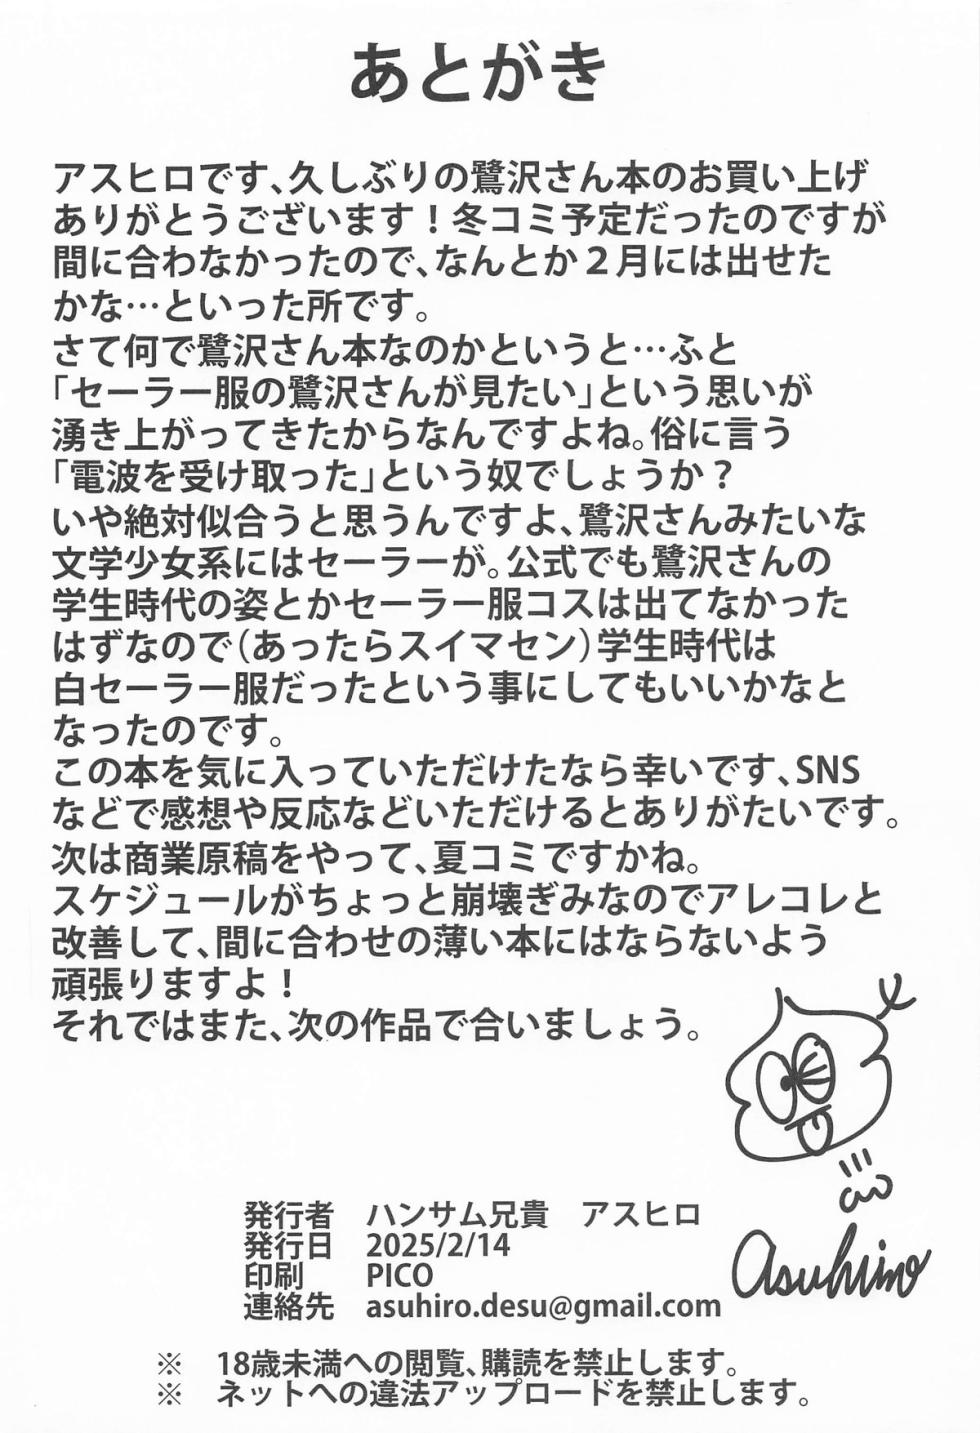 あとがき
アスヒロです、久しぶりの鷺沢さん本のお買い上げ
ありがとうございます！冬コミ予定だったのですが
間に合わなかったので、なんとか２月には出せた
かな…といった所です。
さて何で鷺沢さん本なのかというと…ふと
「セーラー服の鷺沢さんが見たい」という思いが
湧き上がってきたからなんですよね。俗に言う
「電波を受け取った」という奴でしょうか？
いや絶対似合うと思うんですよ、鷺沢さんみたいな
文学少女系にはセーラーが。公式でも鷺沢さんの
学生時代の姿とかセーラー服コスは出てなかった
はずなので（あったらスイマセン）学生時代は
白セーラー服だったという事にしてもいいかなと
なったのです。
この本を気に入っていただけたなら幸いです、SNS
などで感想や反応などいただけるとありがたいです。
次は商業原稿をやって、夏コミですかね。
スケジュールがちょっと崩壊ぎみなのでアレコレと
改善して、間に合わせの薄い本にはならないよう
頑張りますよ！
それではまた、次の作品で合いましょう。
発行者　ハンサム兄貴　アスヒロ
発行日　2025/2/14
印刷　PICO
連絡先　asuhiro.desu@gmail.com
Asuhiro
※　18歳未満への閲覧、購読を禁止します。
※　ネットへの違法アップロードを禁止します。